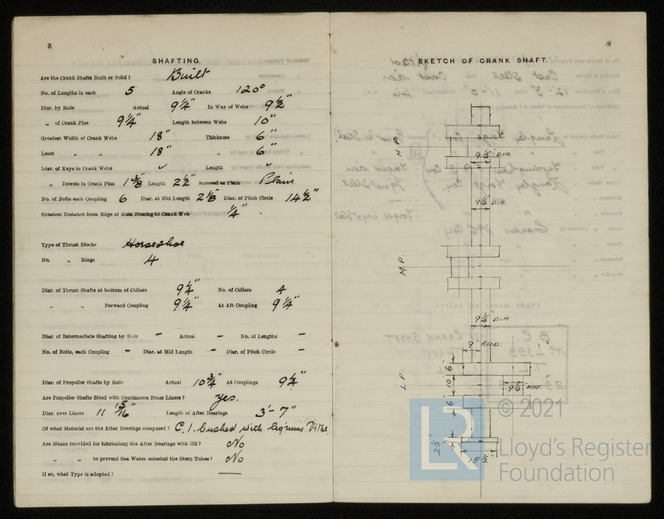 8
SHAFTING.
Are the Crank Shafts Built or Solid? Built
No. of Lengths in each 5 Angle of Cranks 120°
Diar. by Rule Actual 9¼" In Way of Webs 9½
„ of Crank Pins 9¼" Length between Webs 10"
Greatest Width of Crank Webs 18" Thickness 6"
Least „ „ 18" „ 6"
Diar. of Keys in Crank Webs Length
„ Dowels in Crank Pins Length 2½" Screwed or Plain Plain
No. of Bolts each Coupling 6 Diar. at Mid Length Diar. of Pitch Circle 14½"
Greatest Distance from Edge of Main Bearing to Crank Web ¼"
Type of Thrust Blocks Horseshoe
No. „ Rings 4
Diar. of Thrust Shafts at bottom of Collars 9¼" No. of Collars 4
„ „ Forward Coupling 9¼" At Aft Coupling 9¼"
Diar. of Intermediate Shafting by Rule – Actual – No. of Lengths –
No. of Bolts, each Coupling – Diar. at Mid Length – Diar. of Pitch Circle –
Diar. of Propeller Shafts by Rule Actual 10¾" At Couplings 9¼"
Are Propeller Shafts fitted with Continuous Brass Liners? Yes.
Diar. over Liners 11 15/16" Length of After Bearings 3'-7"
Of what Material are the After Bearings composed? C.I. bushed with Lignum Vitae
Are Means provided for lubricating the After Bearings with Oil? No
„ „ to prevent Sea Water entering the Stern Tubes? No
If so, what Type is adopted? —
9
SKETCH OF CRANK SHAFT.
H.P.
9¼" DIA.
9¼" DIA.
M.P.
9¼" DIA
9" RAD.
L.P.
6"
10"
6"
9¼" DIA.
2½"
18½"
© 2021
LR
Lloyd's Register
Foundation